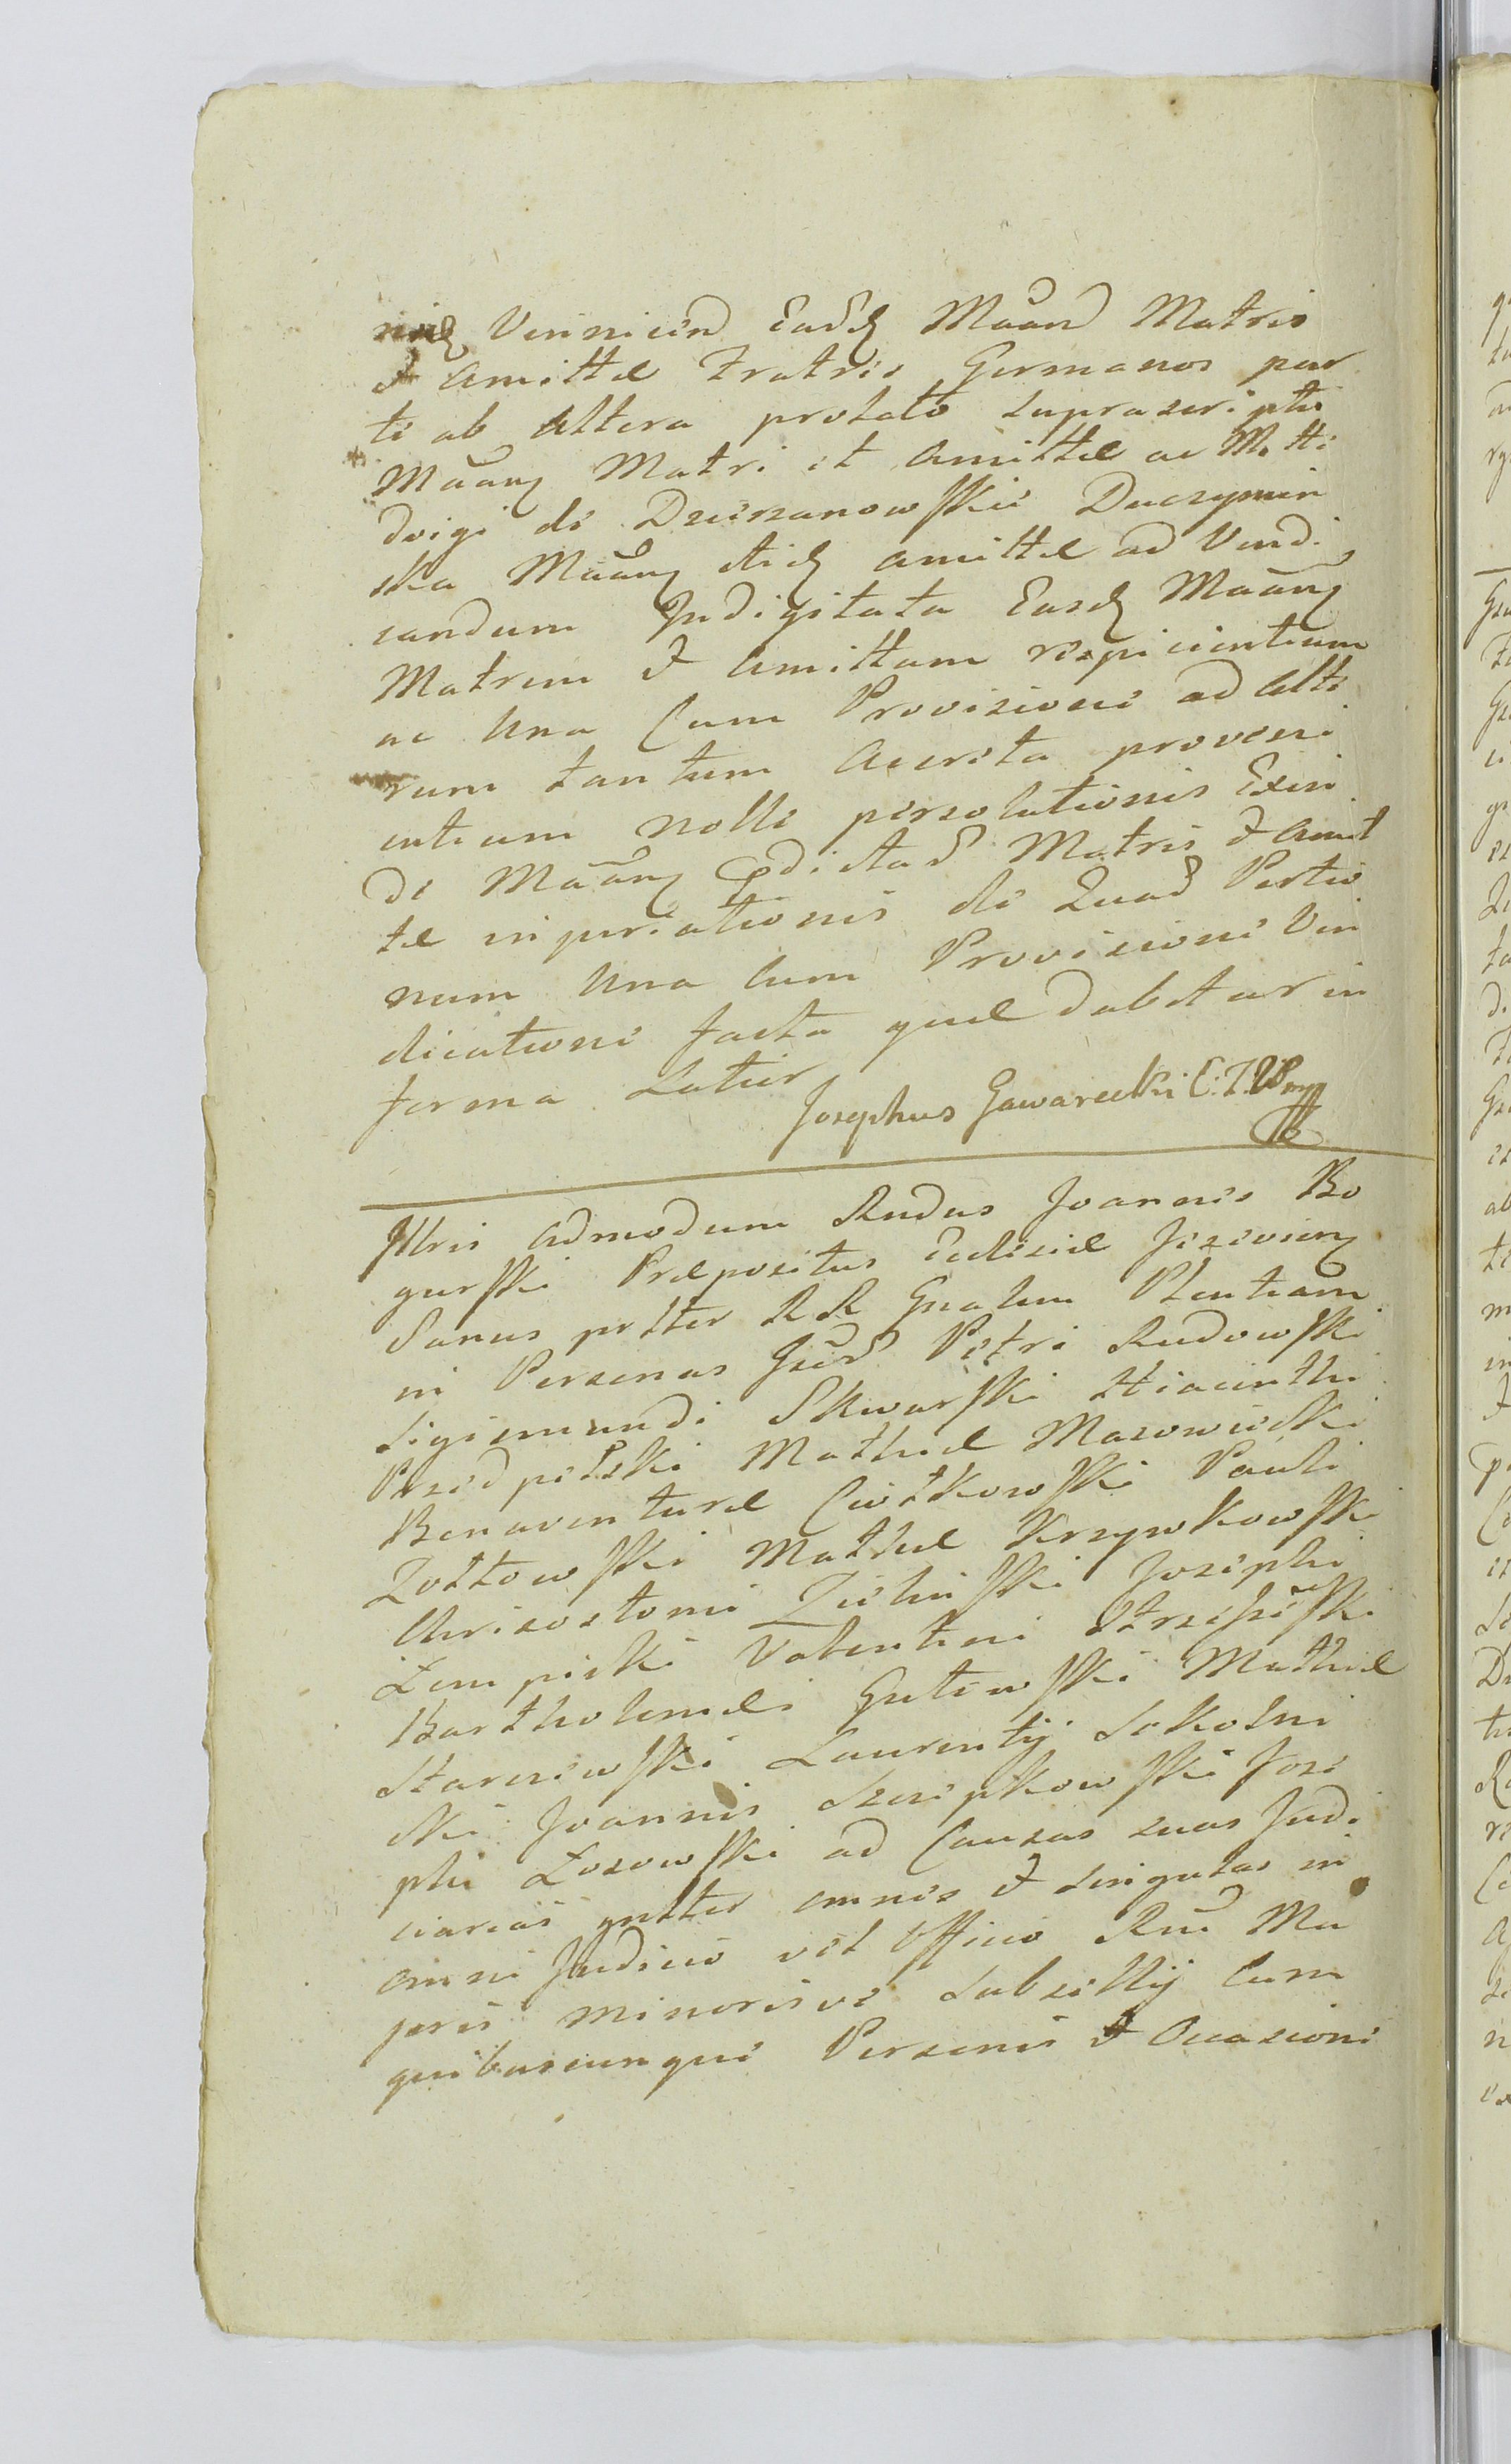 Vennien Ead Maan Matris
et Amittæ Fratris Germanos par
te ab Altera prolato supra scripto
Maan Matri et Amittæ ac M. He
dvigi de Dzierzanowskie Duczymin
ska Maan Amittæ ad Vendi
candum Indigitata Easd Maan
Matrem et Amittam respicientium
ac una Cum Provisione ad Alte
rum tantum Accreta proveni
entium nolle persolutionis Exin
de Maan Matris et Amit
tæ injuriationis de Quad Portio
num una Cum Provisione Vin
dicatione facta quæ dabitur in
forma Latior
Josephus Gawarecki
Illris Admodum Rndus Joannes Bo
gurski Præpositus Ecclesiæ
Sanus ptter RR Gnalem Plentiam
in Personas Gsd Petri Rudowski
Sigismundi Skwarski Hiacinthi
Przedpełski Mathiæ Mazowiecki
Bonaventuræ Cwitkowski Pauli
Zołtowski Mathiæ Krzywkowski
Chrisostomi Zielinski Josephi
Lempicki Valentini
Bartholomæi Gutowski Mathiæ
Starczewski Laurentij Sokolni
cki Joannis Szczepkowski Jose
phi Łosowski ad Causas suas Judi
ciarias gntter omnes et singulas in
omni Judicio vel Officio Rni Ma
joris minorisve Subsellij Cum
quibuscunque Personis et Occasione